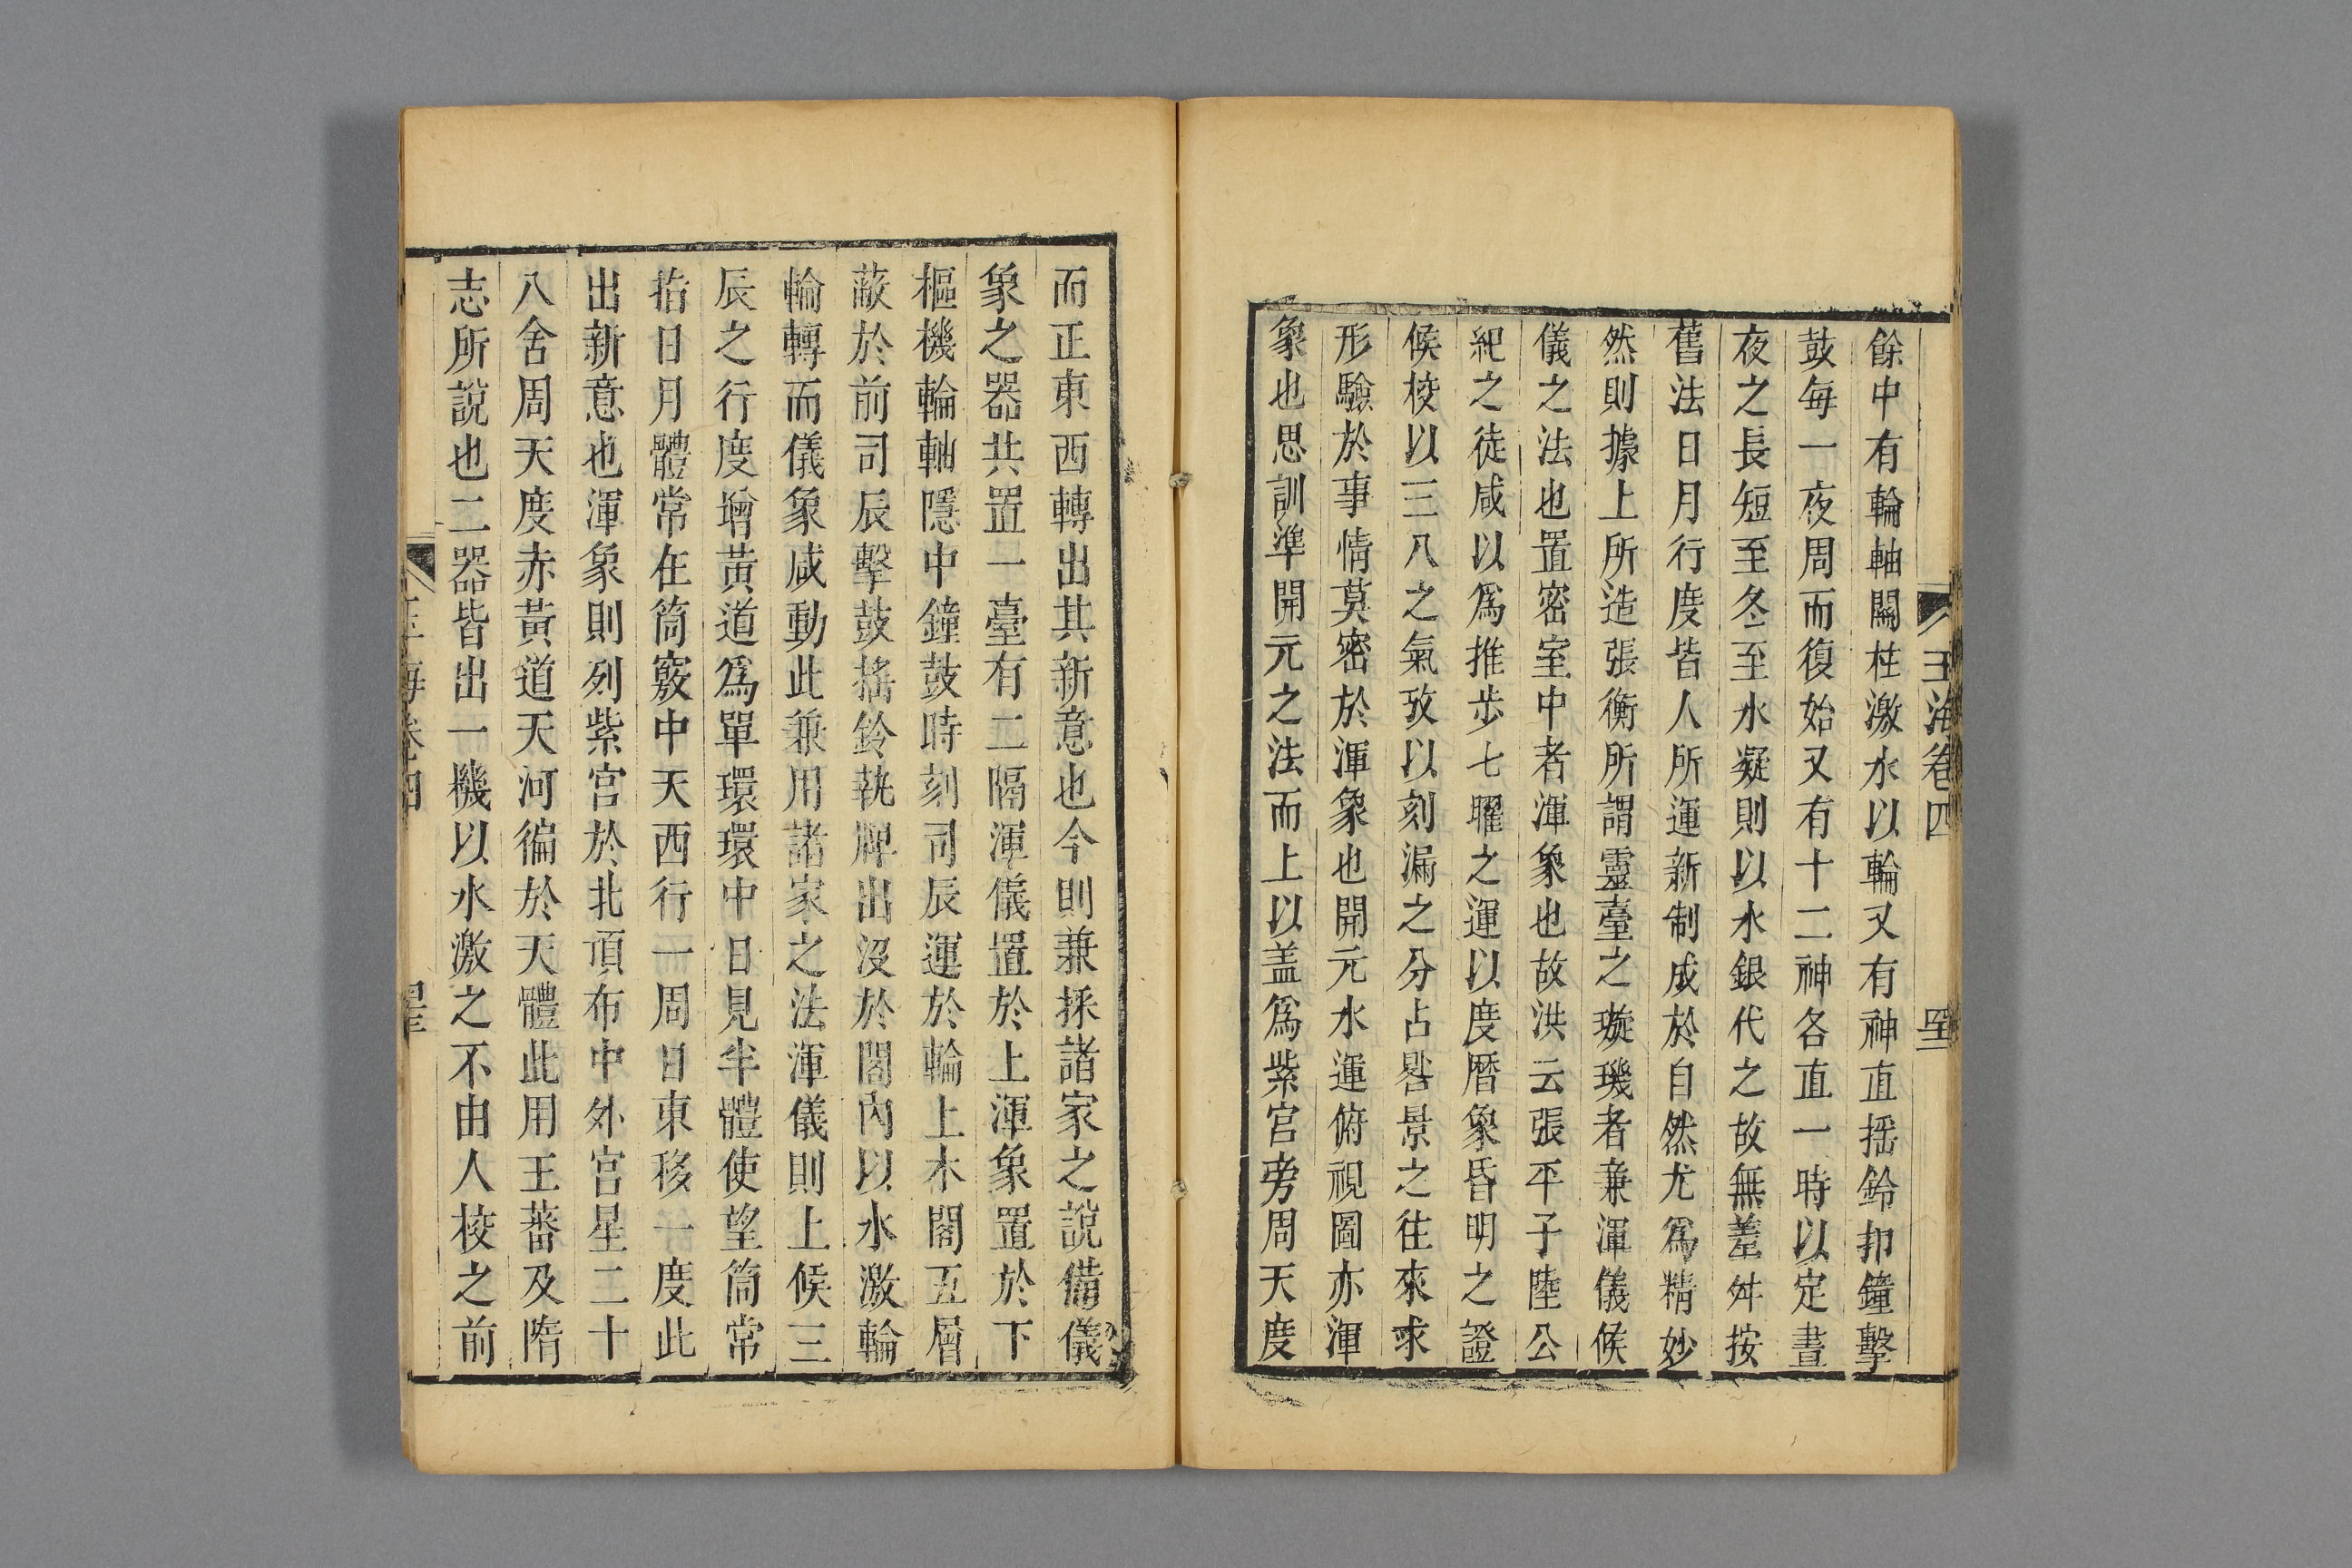 玉海卷四
餘中有輪軸關柱激水以輪又有神直揺鈴扣鐘擊
鼓每一夜周而復始又有十二神各直一時以定晝
夜之長短至冬至水凝則以水銀代之故無差舛按
舊法日月行度皆人所運新制成於自然尤爲精妙
然則據上所造張衡所謂靈臺之璇璣者兼渾儀候
儀之法也置密室中者渾象也故洪云張平子陸公
紀之徒咸以爲推歩七曜之運以度曆象昏明之證
候校以三八之氣攷以刻漏之分占晷景之往來求
形驗於事情莫密於渾象也開元水運俯視圖亦渾
象也思訓準開元之法而上以盖爲紫宮旁周天度
而正東西轉出其新意也今則兼採諸家之說備儀
象之器共置一臺有二隔渾儀置於上渾象置於下
樞機輪軸隱中鐘鼓時刻司辰運於輪上木閣五層
蔽於前司辰擊鼓揺鈴執牌出没於閣內以水激輪
輪轉而儀象咸動此兼用諸家之法渾儀則上候三
辰之行度增黃道爲單環環中日見半體使望筒常
指日月體常在筒竅中天西行一周日東移一度此
出新意也渾象則列紫宮於北頂布中外宮星二十
八舍周天度赤黃道天河徧於天體此用王蕃及隋
志所說也二器皆出一機以水激之不由人校之前